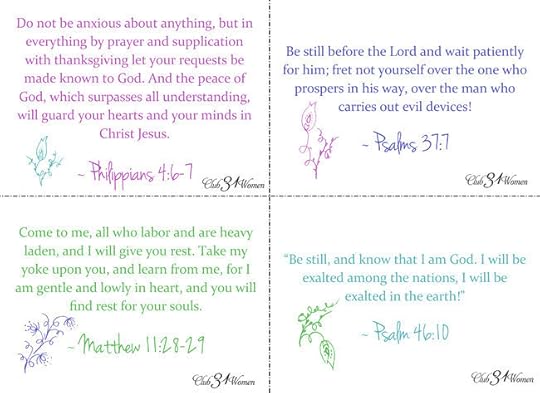 Do not be anxious about anything, but in
everything by prayer and supplication
with thanksgiving let your requests be
made known to God. And the peace of
God, which surpasses all understanding,
will guard your hearts and your minds in
Christ Jesus.
~ Philippians 4:6-7
Club 31 Women
Be still before the Lord and wait patiently
for him; fret not yourself over the one who
prospers in his way, over the man who
carries out evil devices!
~ Psalms 37:7
Club 31 Women
Come to me, all who labor and are heavy
laden, and I will give you rest. Take my
yoke upon you, and learn from me, for I
am gentle and lowly in heart, and you will
find rest for your souls.
~ Matthew 11:28-29
Club 31 Women
“Be still, and know that I am God. I will be
exalted among the nations, I will be
exalted in the earth!”
~ Psalm 46:10
Club 31 Women